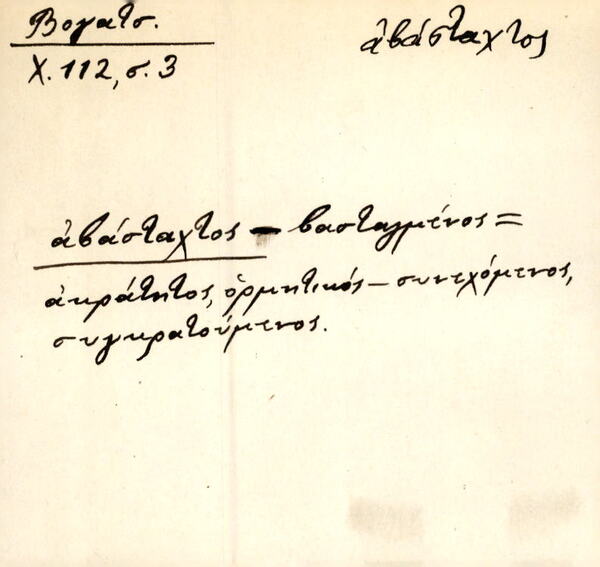 Βογατσ.
ἀβάσταχτος
Χ. 112, σ. 3
ἀβάσταχτος - βασταγμένος =
ἀκράτητος, ὁρμητικός - συνεχόμενος,
συγκρατούμενος.